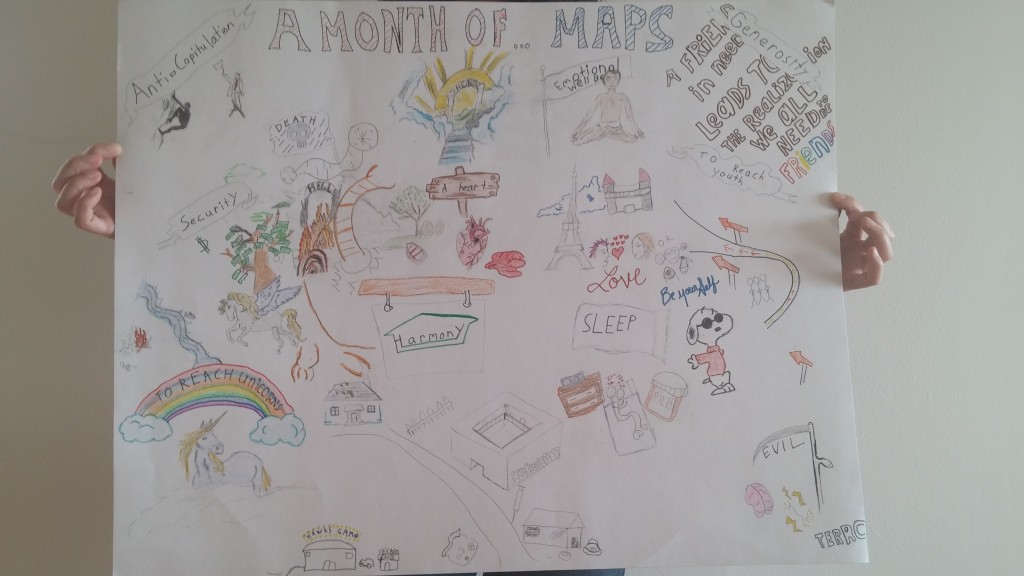 A MONTH OF... MAPS
Anti-Capitulation
DEATH
HEAVEN
Emotional
Well Being
Generosity
A FRIEND
in need
Leads To
THE Realization
We ALL
NEED
Friends
To Reach
youth
Security
$
HELL
A heart
Love
Be yourself
Harmony
SLEEP
TO REACH UNICORNS
EVIL